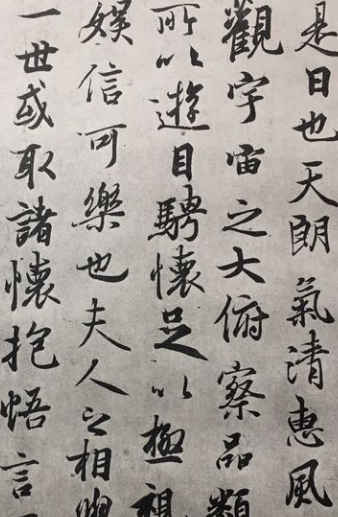 是日也天朗氣清惠風
觀宇宙之大俯察品類
所以遊目騁懷足以極視
娛信可樂也夫人之相與
一世或取諸懷抱悟言